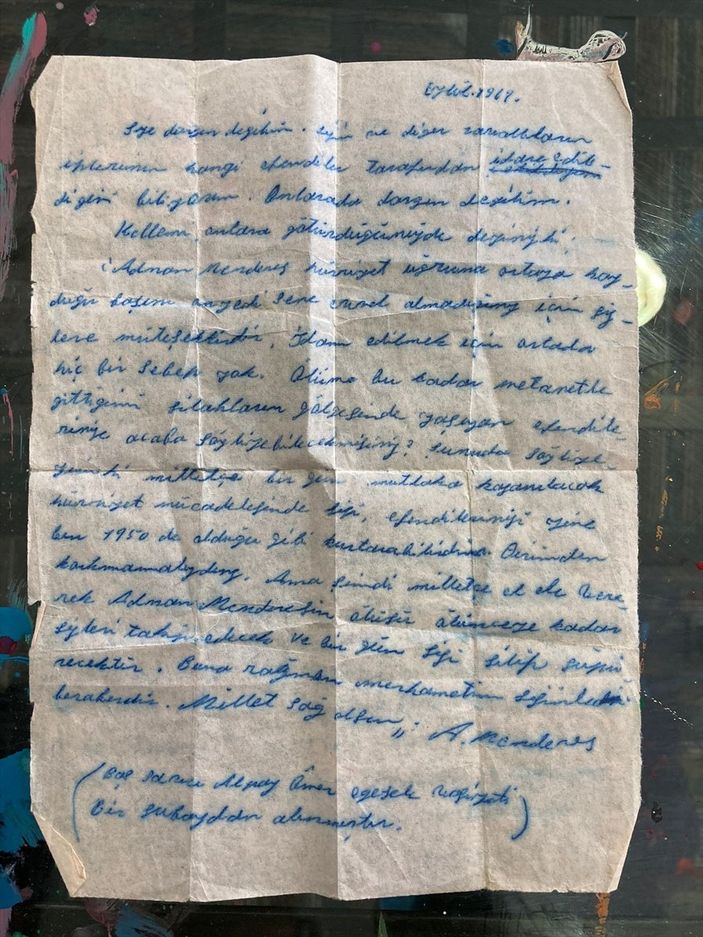 Eylül.1961.
Size dargın değilim. Sizin ve diğer zavallıların
iplerinin hangi efendiler tarafından idare edil-
diğini biliyorum. Onlarada dargın değilim.
Kellemi onlara götürdüğünüzde deyiniz ki;
Adnan Menderes hürriyet uğruna ortaya koy-
duğu başını onyedi sene evvel almadığınız için siz-
lere müteşekkirdir. İdam edilmek için ortada
hiç bir sebep yok. Ölüme bu kadar metanetle
gittiğimi silahların gölgesinde yaşayan efendile-
rinize acaba söyliyebilecekmisiniz? Şunuda söyliye-
yimki milletçe bir gün mutlaka kazanılacak
hürriyet mücadelesinde sizi, efendilerinizi yine
ben 1950 de olduğu gibi kurtarabilirdim. Dirimden
korkmamalıydınız. Ama şimdi milletle el ele vere-
rek Adnan Menderesin ölüsü ölünceye kadar
sizleri takip edecek ve bir gün sizi silip süpü
recektir. Buna rağmen merhametim sizinle
beraberdir. Millet sağ olsun,, A. Menderes
(Baş Ömer Egesel
Bir subaydan alınmıştır.)